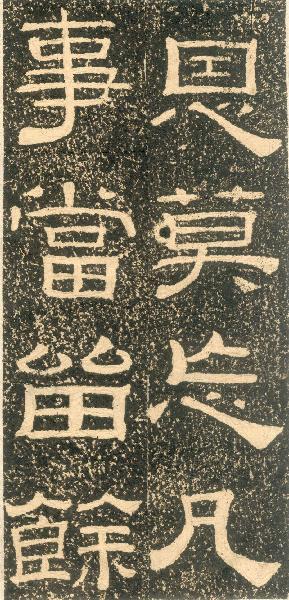 恩莫忘凡
事當留餘